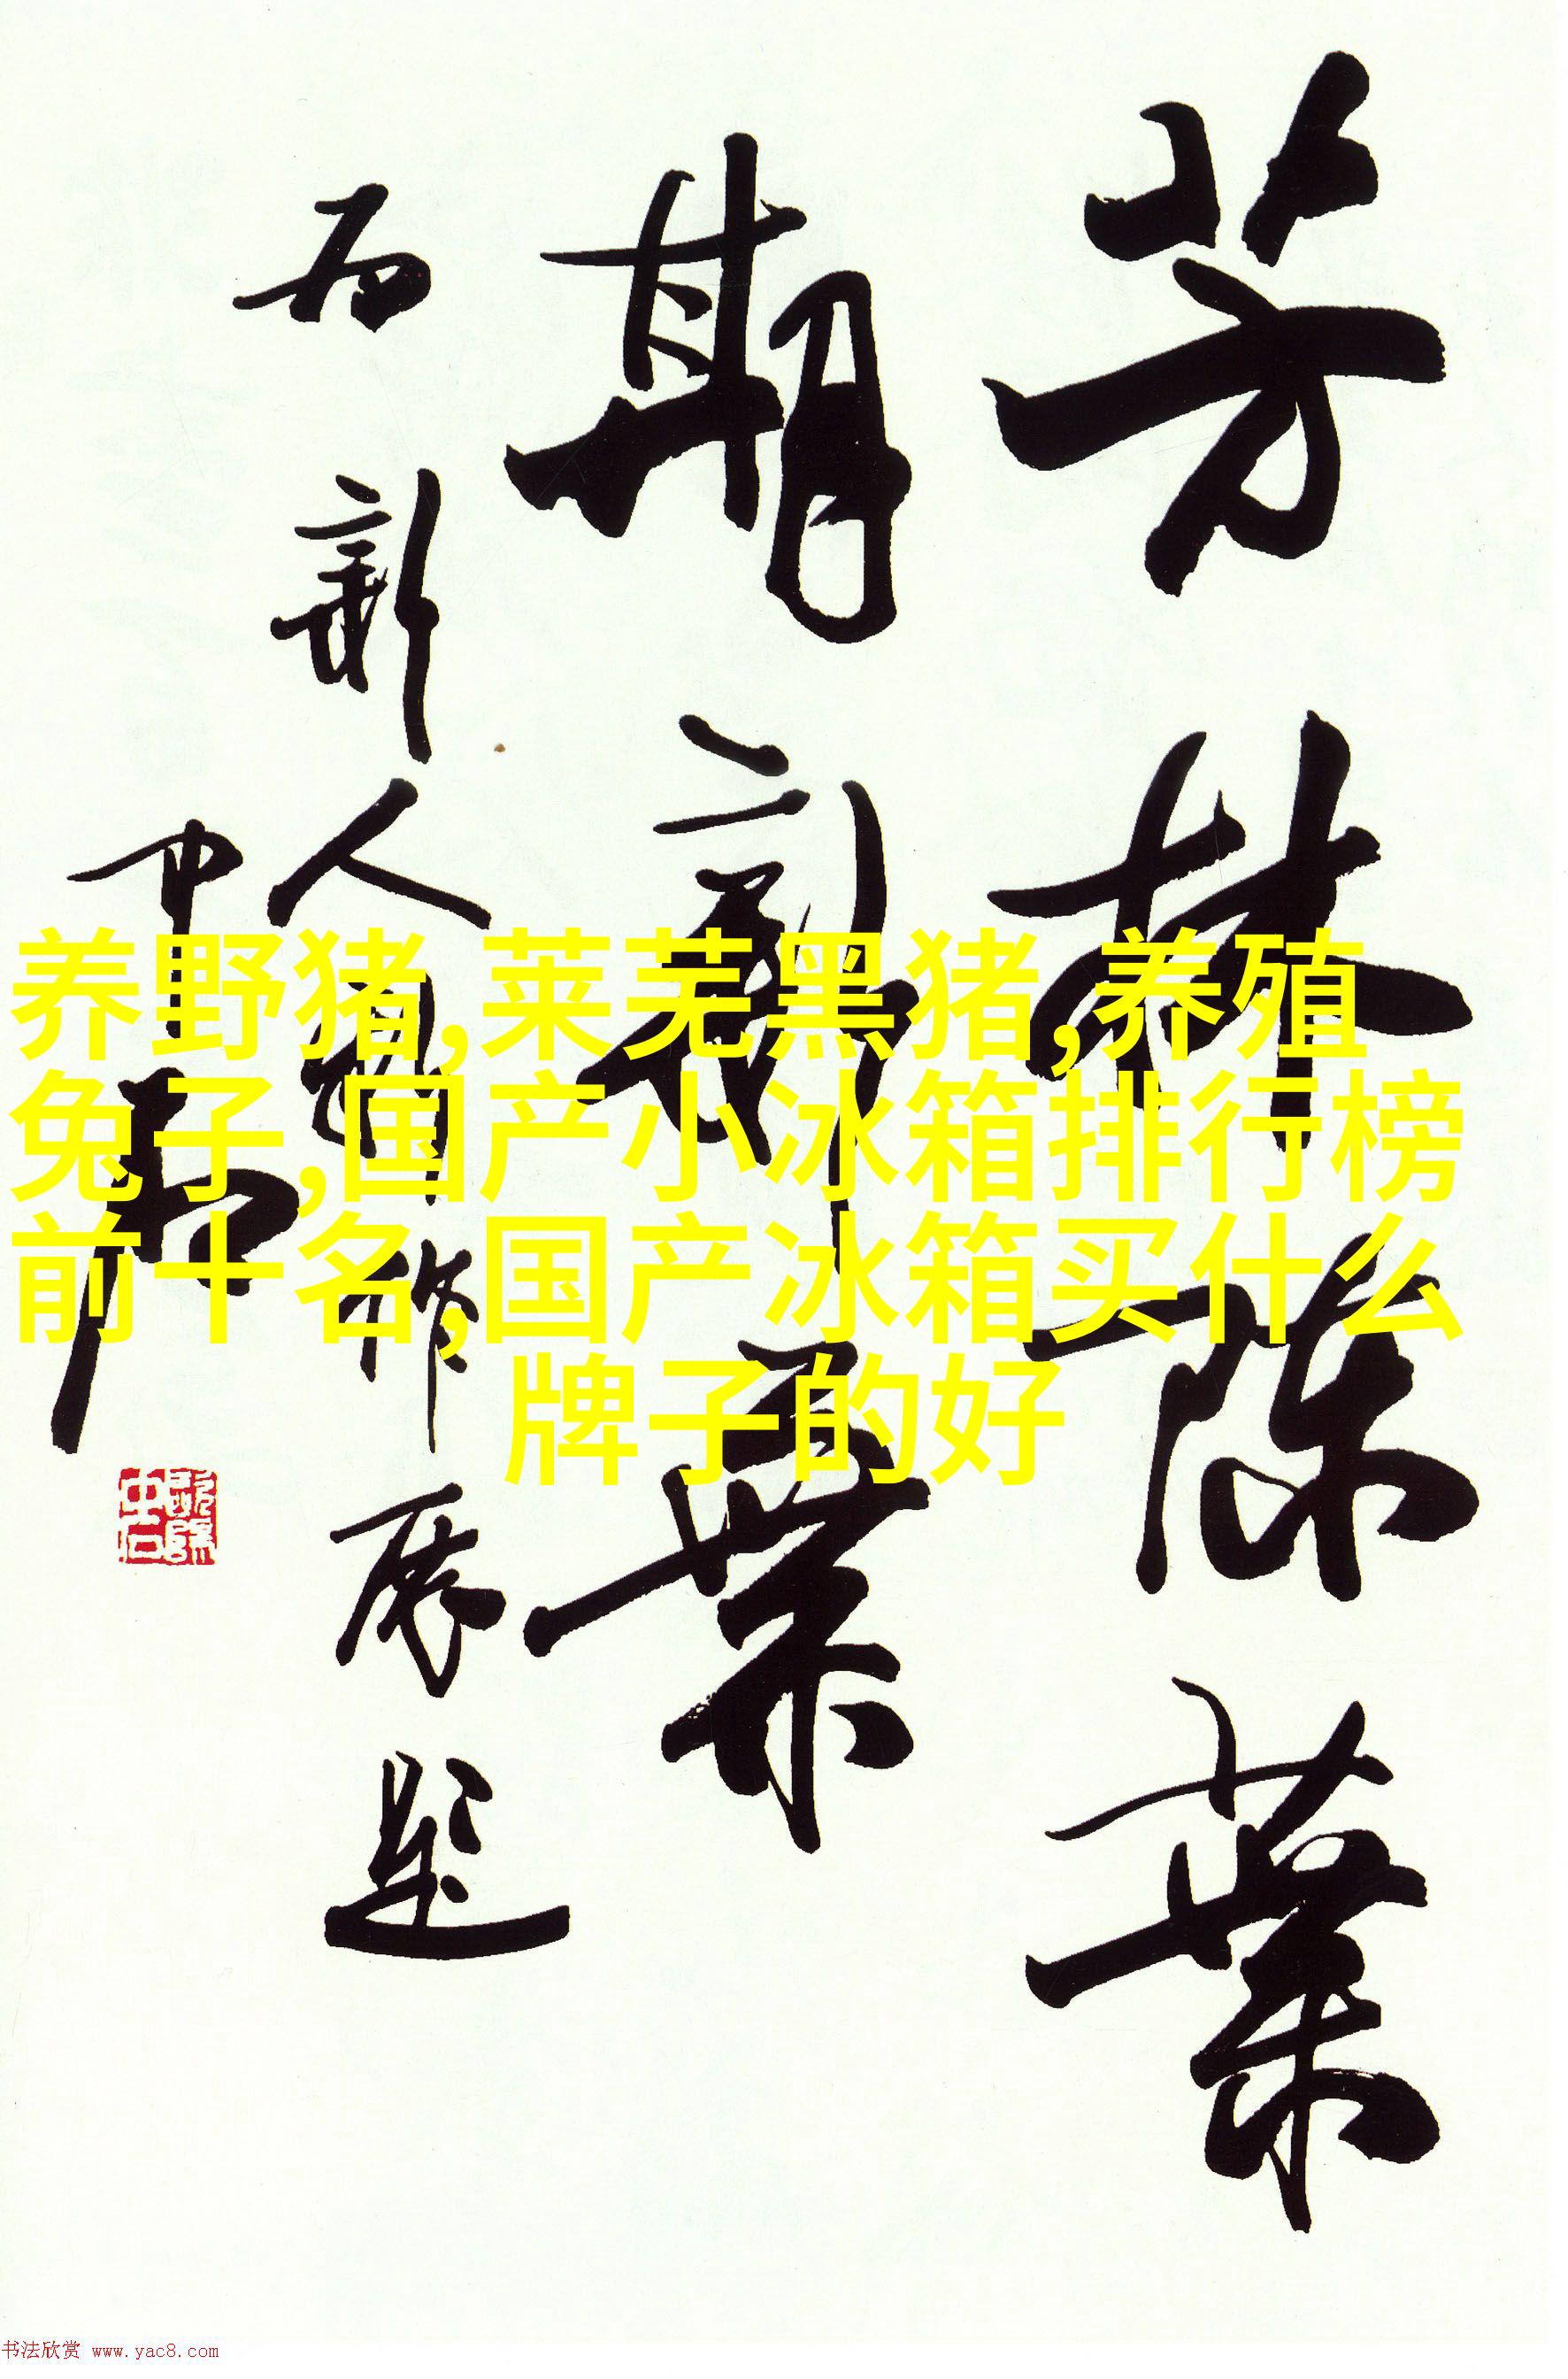 芳林陈叶
期新叶
为新人书作展题
中石
养野猪,莱芜黑猪,养殖
兔子,国产小冰箱排行榜
前十名,国产冰箱买什么
牌子的好
书法欣赏 www.yac8.com